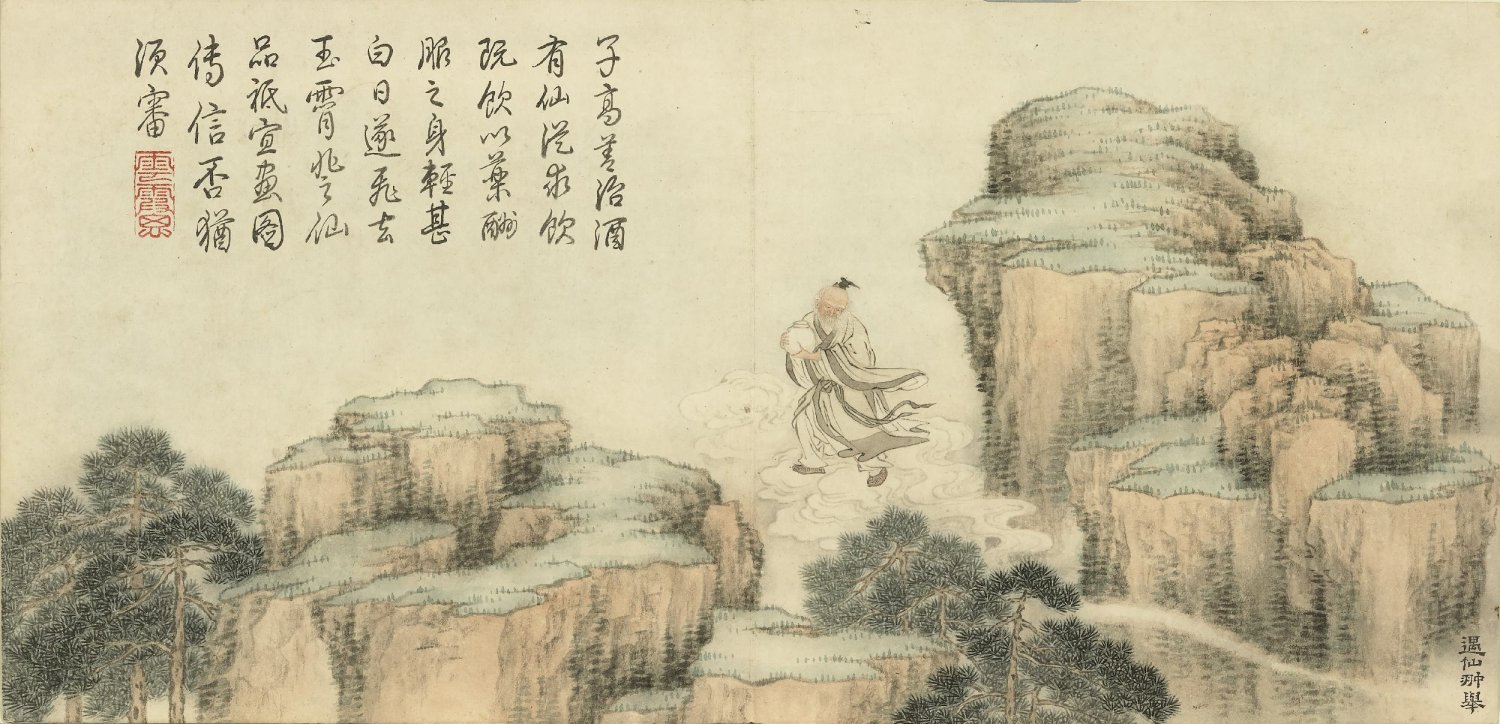 子高善治酒
有仙從求飲
既飲以藥酬
服之身輕甚
白日遂飛去
玉霄登仙
品祇宜畫圖
傳信否猶
須審
雲霞思
遇仙翀舉